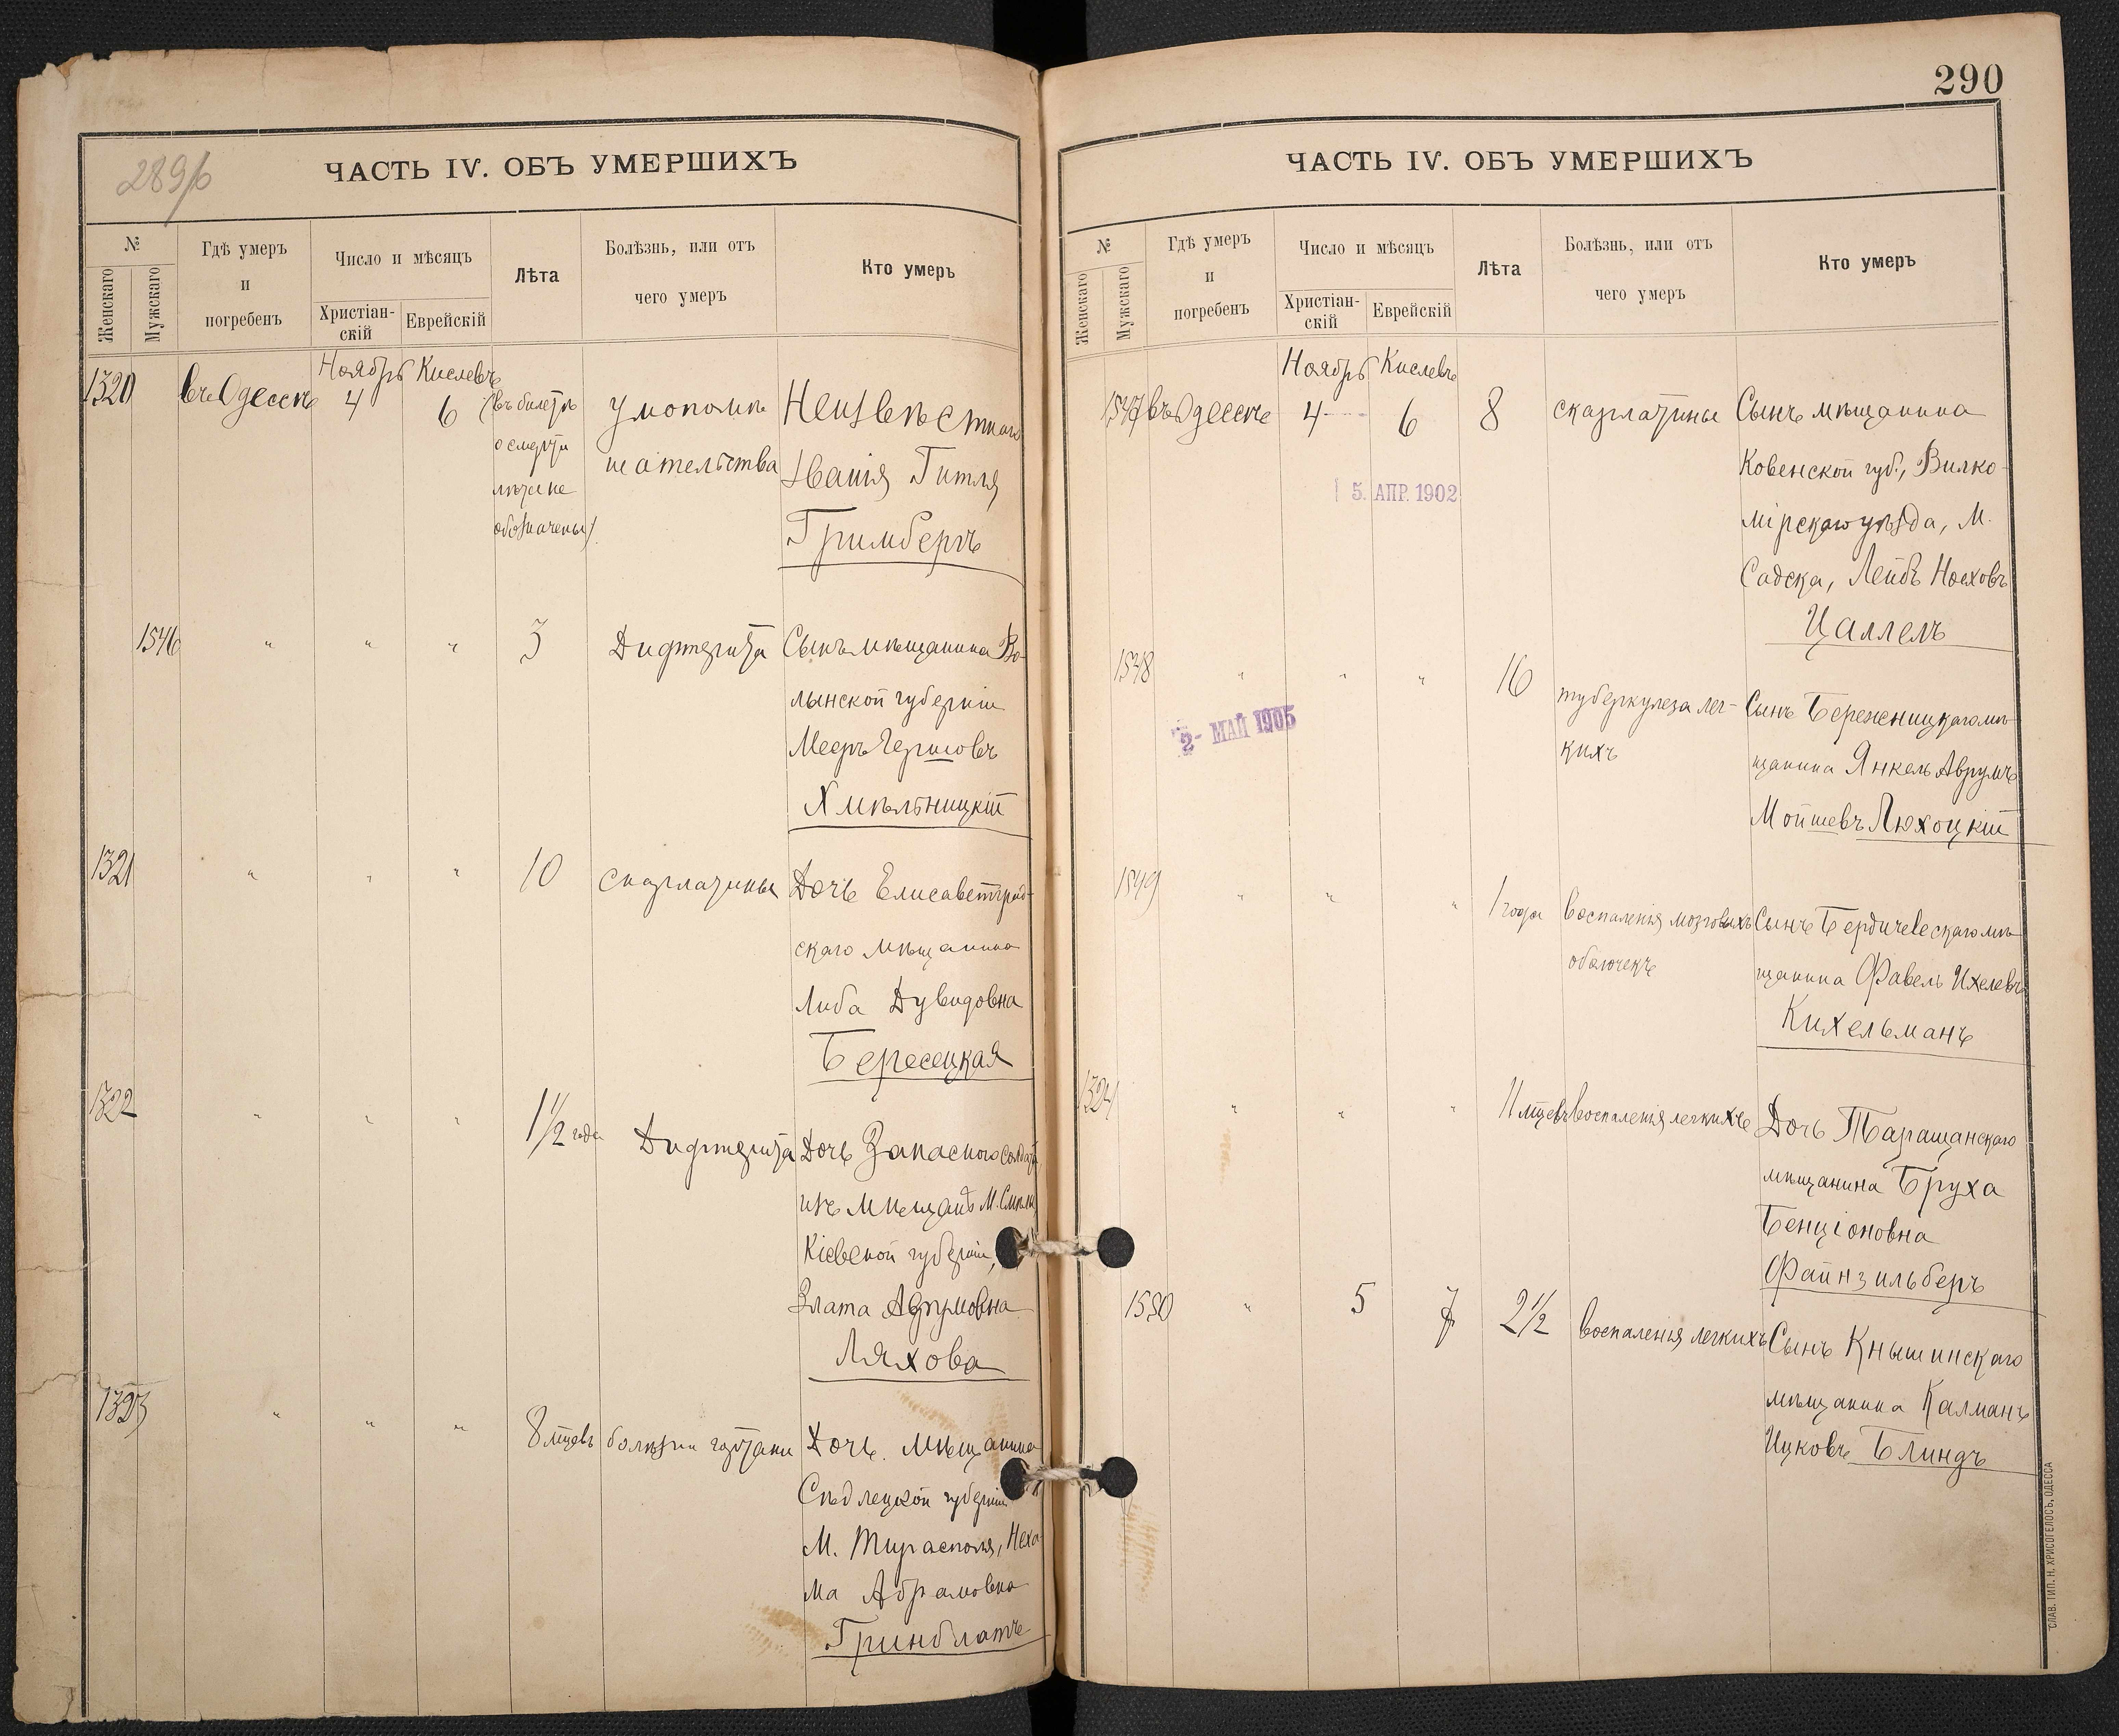 289/б
ЧАСТЬ IV. ОБЪ УМЕРШИХЪ
№
Женскаго
Мужскаго
Гдѣ умеръ
и
погребенъ
Число и мѣсяцъ
Христіан-
скій
Еврейскій
Лѣта
Болѣзнь, или отъ
чего умеръ
Кто умеръ
Ноябрь Кислевъ
1320 въ Одессѣ 4 6 (въ билетѣ умопомѣ- Неизвѣстнаго
о смерти
лѣта не шательства званія Гитля
обозначены)
Гримбергъ
1546 " " " 3 Дифтерита Сынъ мѣщанина Во-
лынской губерніи
Мееръ Гершовъ
Хмѣльницкій
1321 " " " 10 скарлатины Дочь Елисаветград-
скаго мѣщанина
Либа Дувидовна
Бересецкая
1322 " " " 1 1/2 года Дифтерита Дочь Запаснаго солдата
изъ мѣщанъ М. Смѣлы,
Кіевской губерніи,
Злата Аврумовна
Ляхова
1323 " " " 8 мцевъ болѣзни гортани Дочь мѣщанина
Сѣдлецкой губерніи
М. Тирасполя, Неха-
ма Абрамовна
Гринблатъ
290
ЧАСТЬ IV. ОБЪ УМЕРШИХЪ
№
Женскаго
Мужскаго
Гдѣ умеръ
и
погребенъ
Число и мѣсяцъ
Христіан-
скій
Еврейскій
Лѣта
Болѣзнь, или отъ
чего умеръ
Кто умеръ
Ноябрь Кислевъ
1547 въ Одессѣ 4 6 8 скарлатины Сынъ мѣщанина
Ковенской губ., Вилко-
5. АПР. 1902
мірскаго уѣзда, М.
Садска, Лейбъ Ноховъ
Цаллелъ
1548 " " " 16 туберкулеза лег- Сынъ Береженицкаго мѣ-
2- МАЙ 1905
кихъ щанина Янкель Аврумъ
Мойшевъ Люхоцкій
1549 " " " 1 года Воспаленія мозговыхъ Сынъ Бердичевскаго мѣ-
оболочекъ щанина Фавель Ихелевъ
Кихельманъ
1324 " " " 11 мцевъ воспаленія легкихъ Дочь Таращанскаго
мѣщанина Бруха
Бенціоновна
Файнзильберъ
1550 " 5 7 2 1/2 воспаленія легкихъ Сынъ Кнышинскаго
мѣщанина Калманъ
Ицковъ Блиндъ
СЛАВ. ТИП. Н. ХРИСОГЕЛОСЪ, ОДЕССА